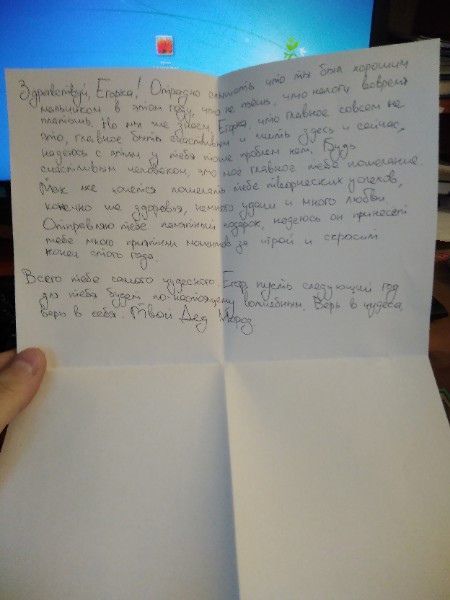 Здравствуй, Егорка! Отрадно слышать что ты был хорошим
мальчиком в этом году, что не пьёшь, что налоги вовремя
платишь. Но мы же знаем, Егорка, что главное совсем не
это, главное быть счастливым и жить здесь и сейчас,
надеюсь с этим у тебя тоже проблем нет. Будь
счастливым человеком, это моё главное тебе пожелание.
Так же хочется пожелать тебе творческих успехов,
конечно же здоровья, немного удачи и много любви.
Отправляю тебе памятный подарок, надеюсь он принесёт
тебе много приятных моментов за игрой и скрасит
конец этого года.
Всего тебе самого чудесного. Егор, пусть следующий год
для тебя будет по-настоящему волшебным. Верь в чудеса,
верь в себя. Твой Дед Мороз